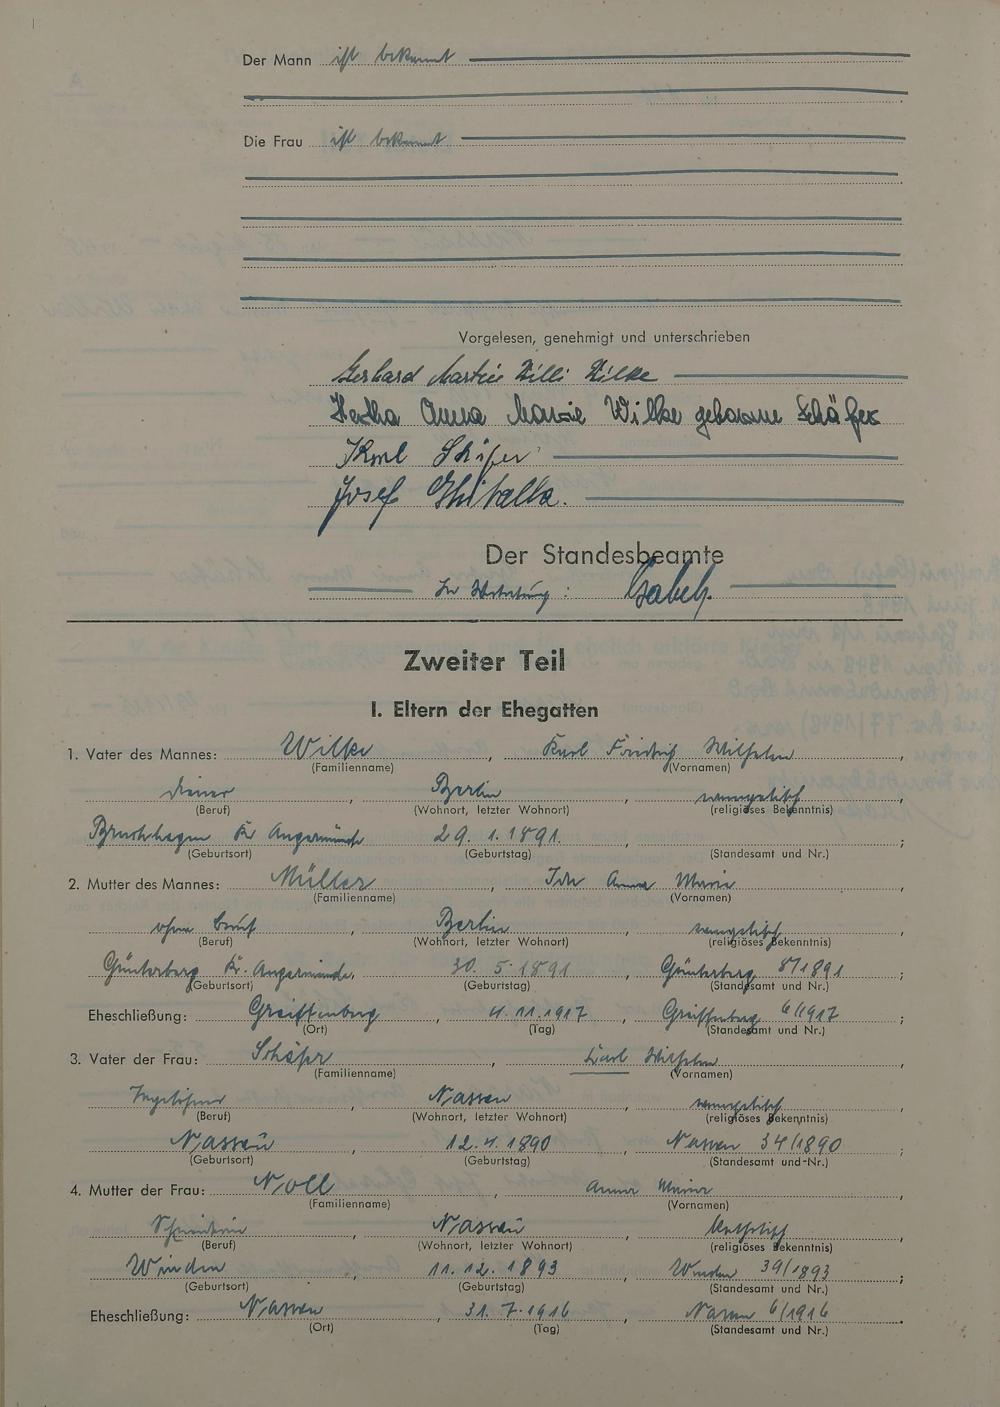 Der Mann ist bekannt
Die Frau ist bekannt
Vorgelesen, genehmigt und unterschrieben
Gerhard Martin Willi Wilke
Hertha Anna Marie Wilke geborene Schäfer
Karl Schäfer
Josef
Der Standesbeamte
In Vertretung: Gabel
Zweiter Teil
I. Eltern der Ehegatten
1. Vater des Mannes: Wilke, Karl Friedrich Wilhelm,
(Familienname) (Vornamen)
Diener, Berlin, evangelisch,
(Beruf) (Wohnort, letzter Wohnort) (religiöses Bekenntnis)
Bruchhagen Kr. Angermünde 29.1.1891. ;
(Geburtsort) (Geburtstag) (Standesamt und Nr.)
2. Mutter des Mannes: Müller, Ida Anna Marie,
(Familienname) (Vornamen)
ohne Beruf, Berlin, evangelisch,
(Beruf) (Wohnort, letzter Wohnort) (religiöses Bekenntnis)
Günterberg Kr. Angermünde, 30.5.1891, Günterberg 8/1891;
(Geburtsort) (Geburtstag) (Standesamt und Nr.)
Eheschließung: Greiffenberg, 4.11.1917, Greiffenberg 6/1917;
(Ort) (Tag) (Standesamt und Nr.)
3. Vater der Frau: Schäfer, Karl Wilhelm,
(Familienname) (Vornamen)
Nassau, evangelisch,
(Beruf) (Wohnort, letzter Wohnort) (religiöses Bekenntnis)
Nassau, 12.4.1890, Nassau 34/1890;
(Geburtsort) (Geburtstag) (Standesamt und Nr.)
4. Mutter der Frau: Noll, Anna Maria,
(Familienname) (Vornamen)
Nassau, katholisch,
(Beruf) (Wohnort, letzter Wohnort) (religiöses Bekenntnis)
Winden, 11.12.1893, Winden 39/1893;
(Geburtsort) (Geburtstag) (Standesamt und Nr.)
Eheschließung: Nassau, 31.7.1916, Nassau 6/1916
(Ort) (Tag) (Standesamt und Nr.)